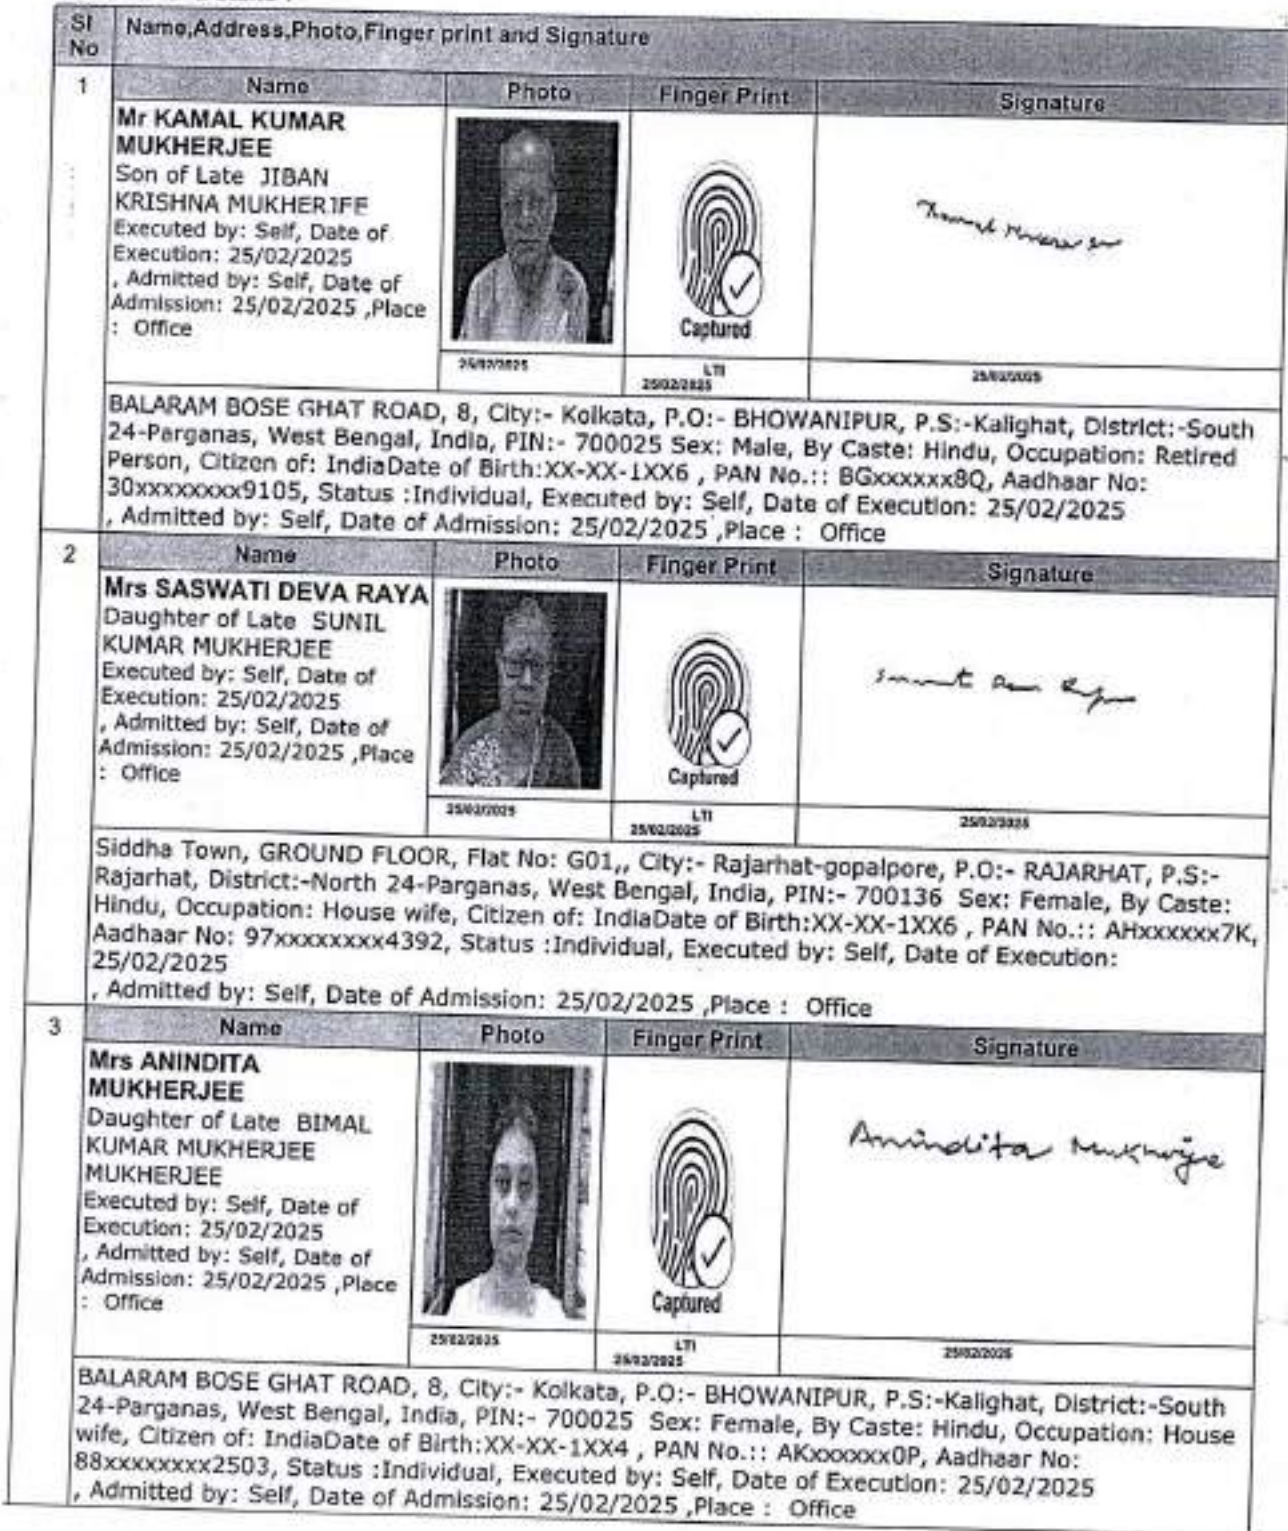 Sl No
Name,Address,Photo,Finger print and Signature
1
Name
Photo
Finger Print
Signature
Mr KAMAL KUMAR
MUKHERJEE
Son of Late JIBAN
KRISHNA MUKHERJEE
Executed by: Self, Date of
Execution: 25/02/2025
, Admitted by: Self, Date of
Admission: 25/02/2025 ,Place
: Office
Captured
25/02/2025
LTI
25/02/2025
25/02/2025
BALARAM BOSE GHAT ROAD, 8, City:- Kolkata, P.O:- BHOWANIPUR, P.S:-Kalighat, District:-South
24-Parganas, West Bengal, India, PIN:- 700025 Sex: Male, By Caste: Hindu, Occupation: Retired
Person, Citizen of: IndiaDate of Birth:XX-XX-1XX6 , PAN No.:: BGxxxxxx8Q, Aadhaar No:
30xxxxxxxx9105, Status :Individual, Executed by: Self, Date of Execution: 25/02/2025
, Admitted by: Self, Date of Admission: 25/02/2025 ,Place : Office
2
Name
Photo
Finger Print
Signature
Mrs SASWATI DEVA RAYA
Daughter of Late SUNIL
KUMAR MUKHERJEE
Executed by: Self, Date of
Execution: 25/02/2025
, Admitted by: Self, Date of
Admission: 25/02/2025 ,Place
: Office
Captured
25/02/2025
LTI
25/02/2025
25/02/2025
Siddha Town, GROUND FLOOR, Flat No: G01,, City:- Rajarhat-gopalpore, P.O:- RAJARHAT, P.S:-
Rajarhat, District:-North 24-Parganas, West Bengal, India, PIN:- 700136 Sex: Female, By Caste:
Hindu, Occupation: House wife, Citizen of: IndiaDate of Birth:XX-XX-1XX6 , PAN No.:: AHxxxxxx7K,
Aadhaar No: 97xxxxxxxx4392, Status :Individual, Executed by: Self, Date of Execution:
25/02/2025
, Admitted by: Self, Date of Admission: 25/02/2025 ,Place : Office
3
Name
Photo
Finger Print
Signature
Mrs ANINDITA
MUKHERJEE
Daughter of Late BIMAL
KUMAR MUKHERJEE
MUKHERJEE
Executed by: Self, Date of
Execution: 25/02/2025
, Admitted by: Self, Date of
Admission: 25/02/2025 ,Place
: Office
Captured
Anindita Mukherjee
25/02/2025
LTI
25/02/2025
25/02/2025
BALARAM BOSE GHAT ROAD, 8, City:- Kolkata, P.O:- BHOWANIPUR, P.S:-Kalighat, District:-South
24-Parganas, West Bengal, India, PIN:- 700025 Sex: Female, By Caste: Hindu, Occupation: House
wife, Citizen of: IndiaDate of Birth:XX-XX-1XX4 , PAN No.:: AKxxxxxx0P, Aadhaar No:
88xxxxxxxx2503, Status :Individual, Executed by: Self, Date of Execution: 25/02/2025
, Admitted by: Self, Date of Admission: 25/02/2025 ,Place : Office